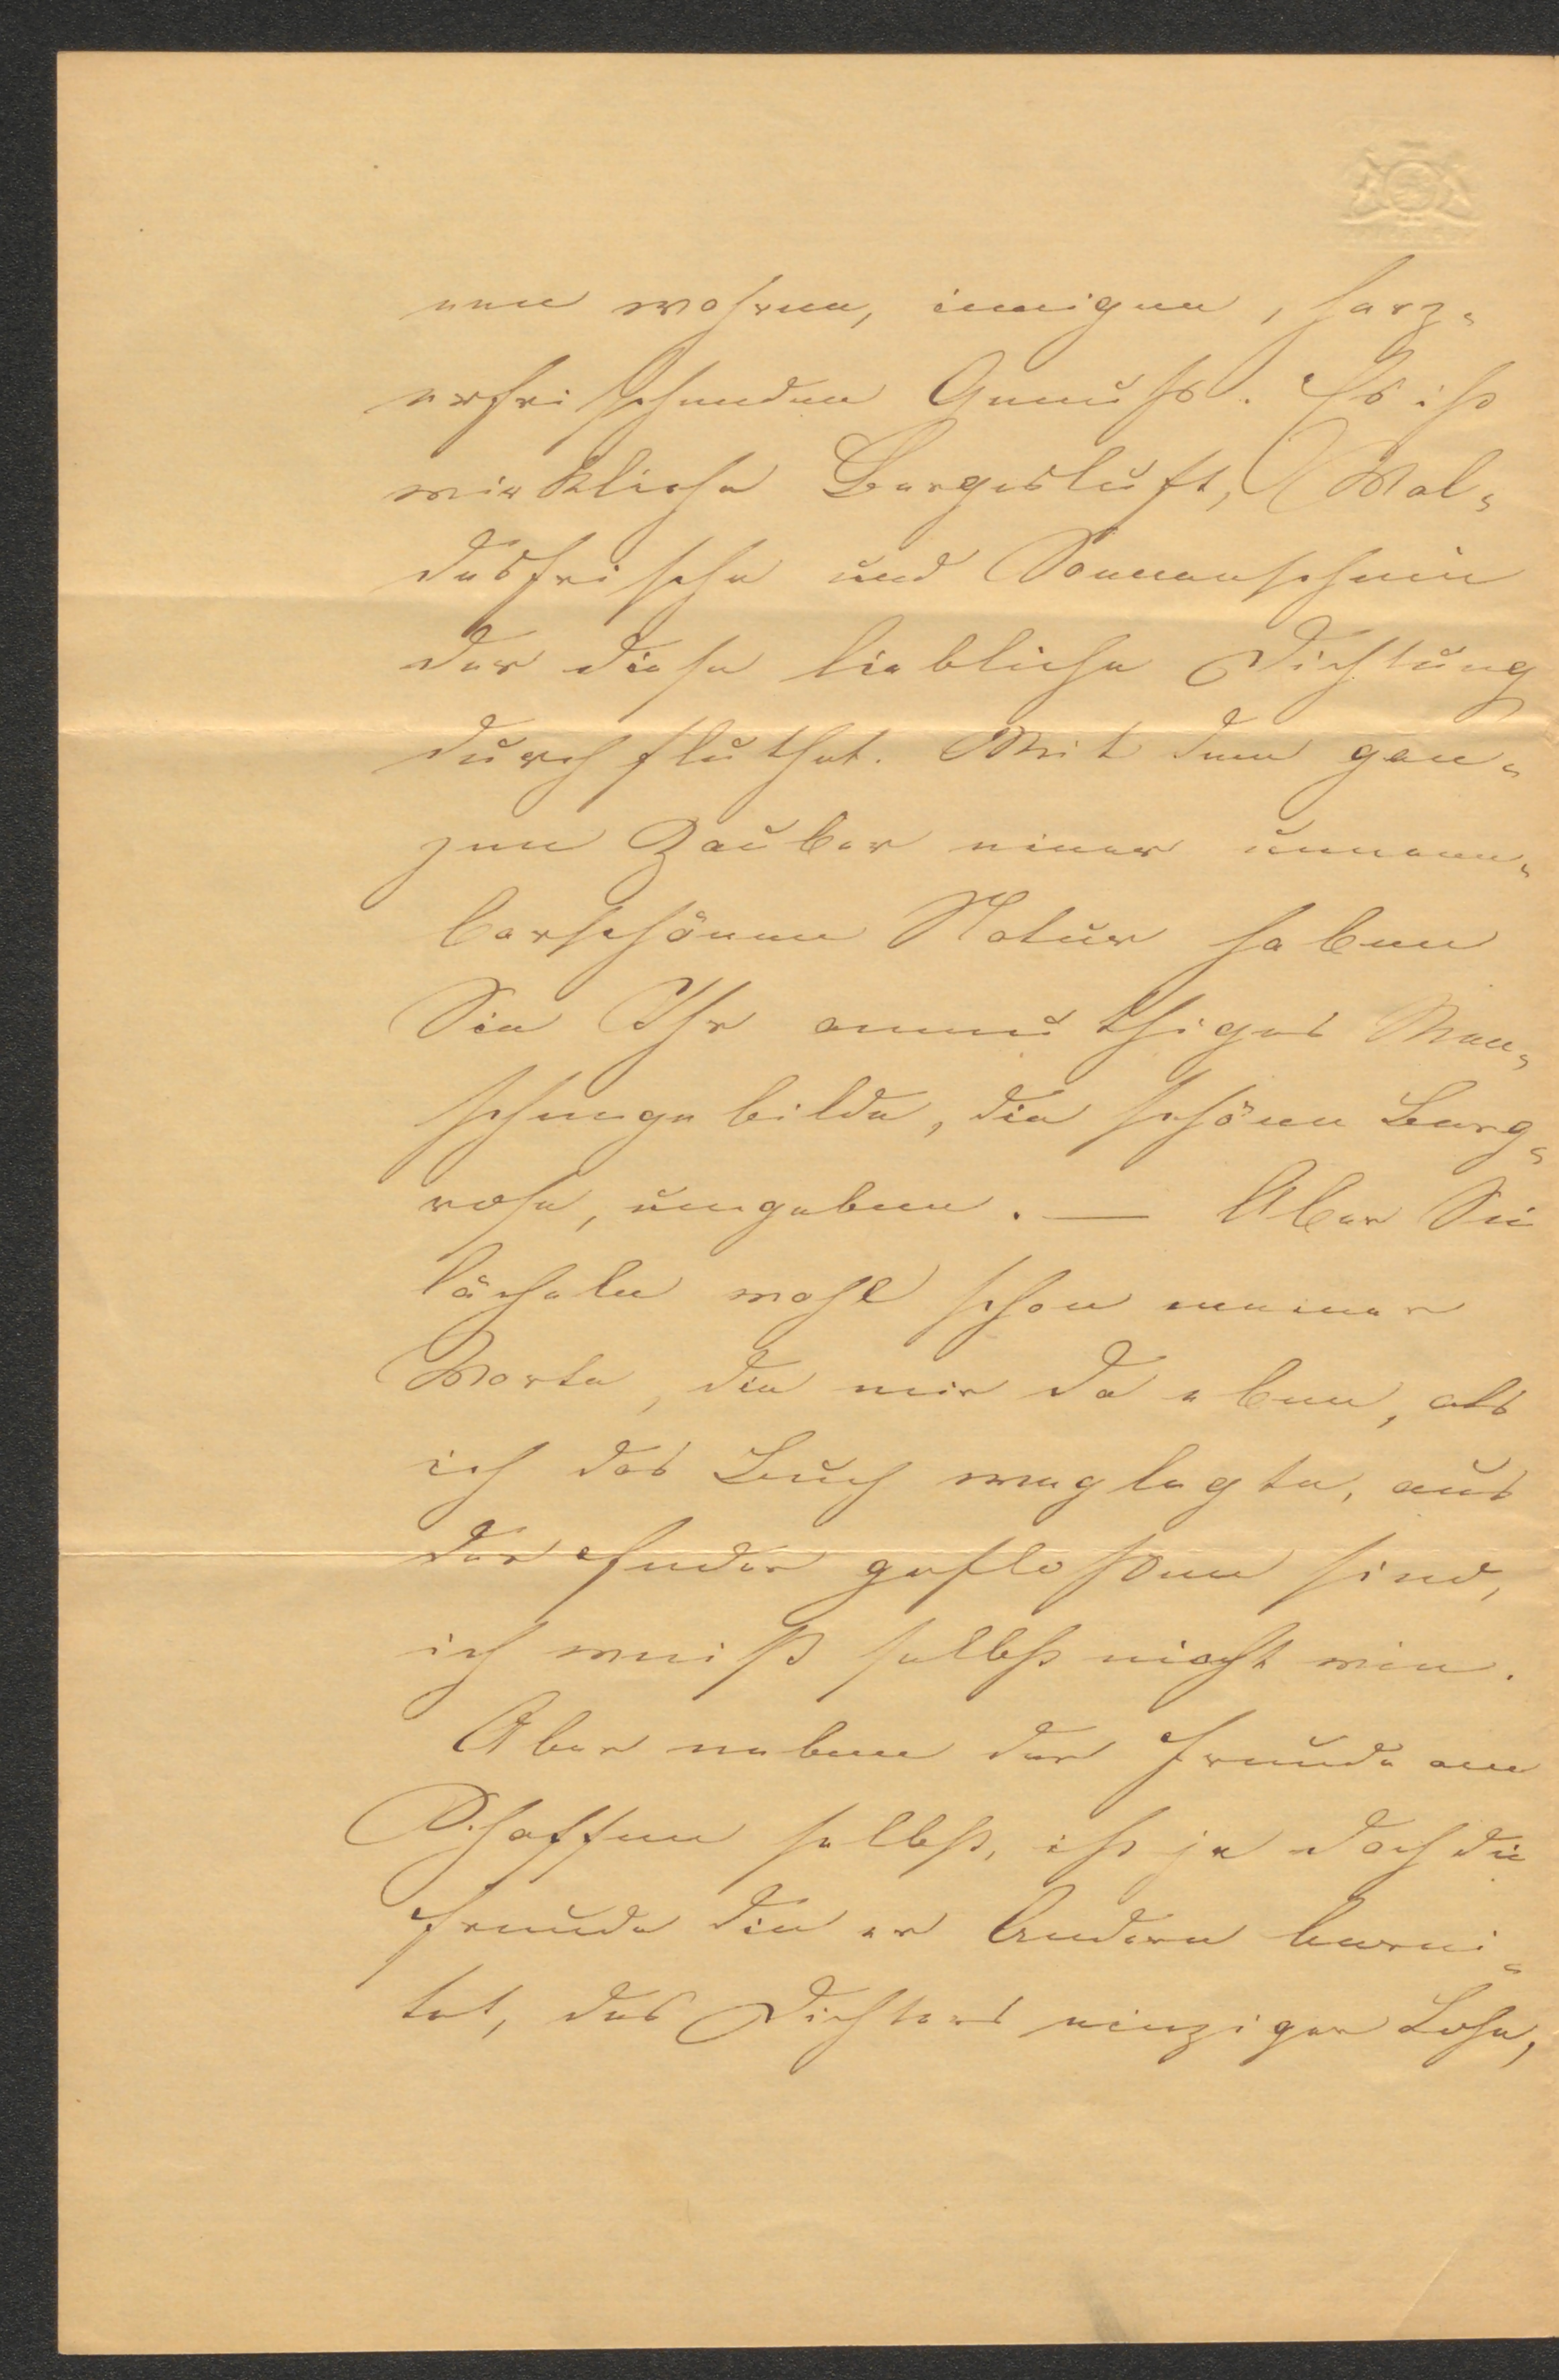 nen wahren, innigen, herz-
erfrischenden Genuß. Es ist
wirkliche Bergesluft, Wal-
desfrische und Sonnenschein
der diese liebliche Dichtung
durchfluthet. Mit dem gan-
zen Zauber einer unnenn-
barschönen Natur haben
Sie Ihr anmuthiges Men-
schengebilde, die schöne Berg-
rose, umgeben. — Aber Sie
lächeln wohl schon meiner
Worte, die mir da eben, als
ich das Buch weglegte, aus
der Feder geflossen sind,
ich weiß selbst nicht wie.
Aber neben der Freude am
Schaffen selbst, ist ja doch die
Freude die er Andern berei-
tet, des Dichters einziger Lohn,